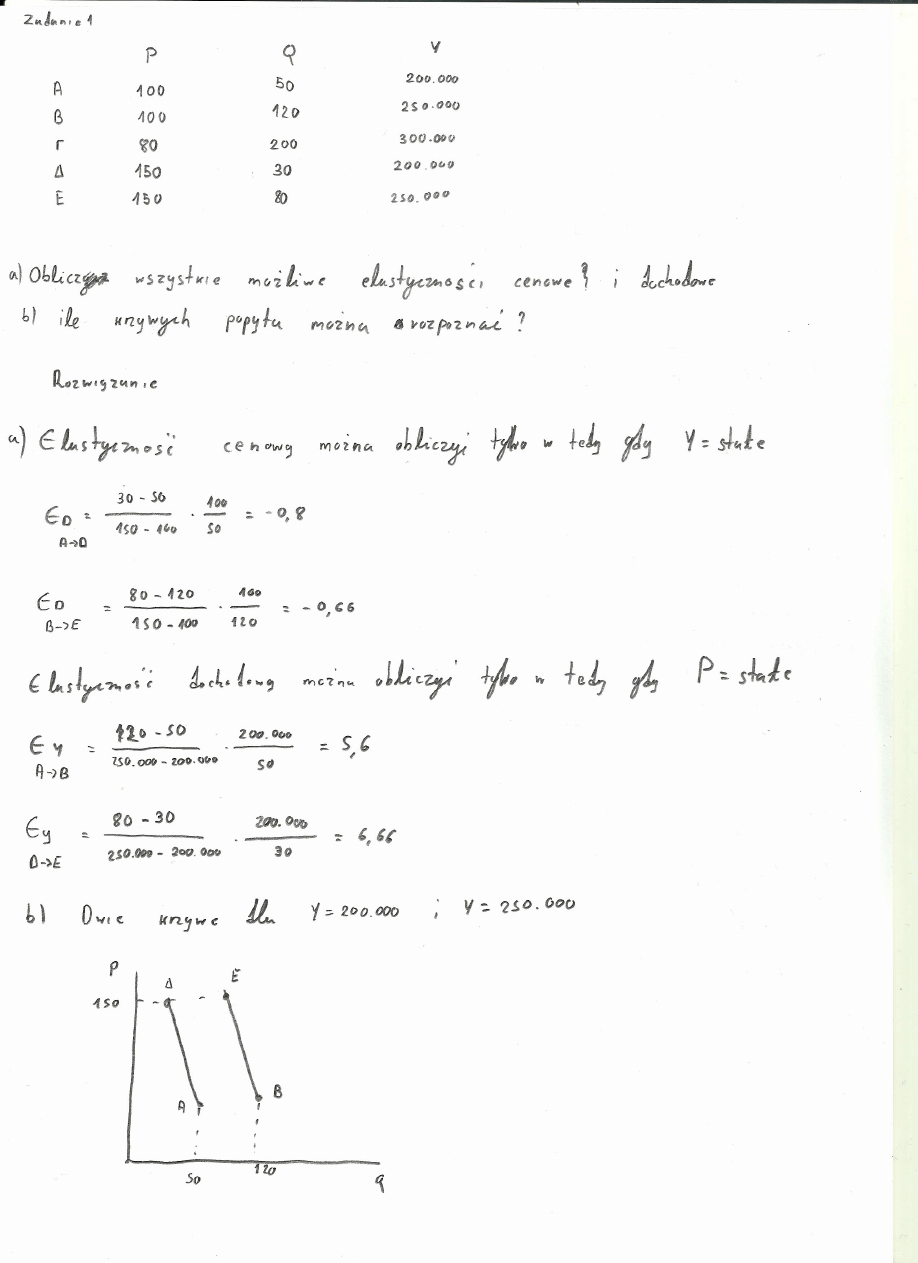 Zadanie 1
P Q Y
A 100 50 200.000
B 100 120 250.000
Γ 80 200 300.000
Δ 150 30 200.000
E 150 80 250.000
a) Oblicz wszystkie możliwe elastyczności cenowe i dochodowe
b) ile krzywych popytu można rozpoznać?
Rozwiązanie
a) Elastyczność cenową można obliczyć tylko w tedy gdy Y = stałe
ϵD A->D = 30 - 50 / 150 - 100 · 100 / 50 = - 0,8
ϵD B->E = 80 - 120 / 150 - 100 · 100 / 120 = - 0,66
Elastyczność dochodową można obliczyć tylko w tedy gdy P = stałe
ϵY A->B = 120 - 50 / 250.000 - 200.000 · 200.000 / 50 = 5,6
ϵy D->E = 80 - 30 / 250.000 - 200.000 · 200.000 / 30 = 6,66
b) Dwie krzywe dla Y = 200.000 ; Y = 250.000
P
Δ E
150
A B
50 120 q